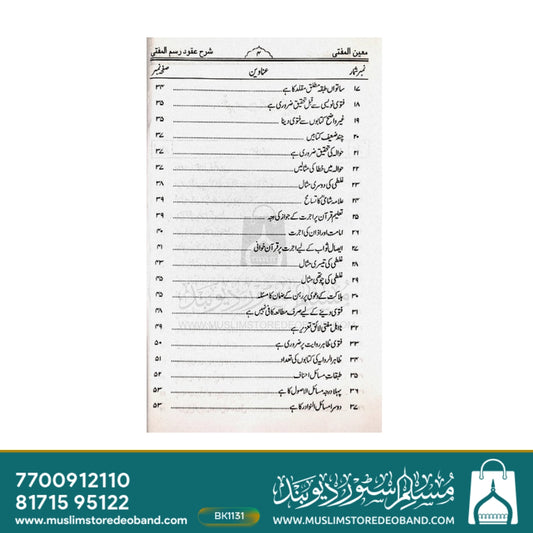 معین المفتی ۴ شرح عقود رسم المفتی
نمبر شمار عناوین صفحہ نمبر
۱۷ ساتواں طبقہ مطلق مقلد کا ہے ۳۴
۱۸ فتویٰ نویسی سے قبل تحقیق ضروری ہے ۳۵
۱۹ غیر واضح کتابوں سے فتویٰ دینا ۳۵
۲۰ چند ضعیف کتابیں ۳۷
۲۱ حوالہ کی تحقیق ضروری ہے ۳۷
۲۲ حوالہ میں خطا کی مثالیں ۳۷
۲۳ غلطی کی دوسری مثال ۳۸
۲۴ علامہ شامیؒ کا تسامح ۳۹
۲۵ تعلیم قرآن پر اجرت کے جواز کی وجہ ۳۹
۲۶ امامت اور اذان کی اجرت ۴۰
۲۷ ایصال ثواب کے لیے اجرت پر قرآن خوانی ۴۱
۲۸ غلطی کی تیسری مثال ۴۳
۲۹ غلطی کی چوتھی مثال ۴۵
۳۰ ہلاکت کے دعویٰ پر رہن کے ضمان کا مسئلہ ۴۵
۳۱ فتویٰ دینے کے لیے صرف مطالعہ کافی نہیں ہے ۴۸
۳۲ نااہل مفتی لائق تعزیر ہے ۴۹
۳۳ فتویٰ ظاہر روایت پر ضروری ہے ۵۰
۳۴ ظاہر الروایہ کی کتابوں کی تعداد ۵۱
۳۵ طبقات مسائل احناف ۵۲
۳۶ پہلا درجہ مسائل الاصول کا ہے ۵۳
۳۷ دوسرا مسائل النوادر کا ہے ۵۳
مسلم سٹور دیوبند
WWW.MUSLIMSTOREDEOBAND.COM
7700912110
81715 95122
www.muslimstoredeoband.com
BK1131
مسلم سٹور دیوبند
WWW.MUSLIMSTOREDEOBAND.COM